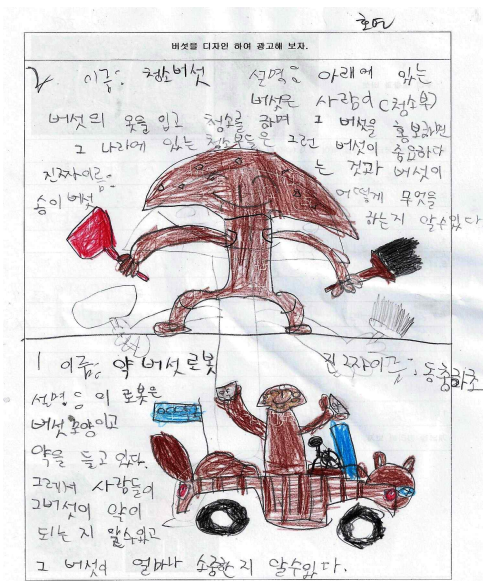 버섯을 디자인 하여 광고해 보자.
2 이름: 청소버섯
설명: 아래에 있는
버섯은 사람이 (청소부)
버섯의 옷을 입고 청소를 하며 그 버섯을 홍보하면
그 나라에 있는 청소부들은 그런 버섯이 중요하다
는 것과 버섯이
어떻게 무엇을
하는지 알수있다
진짜이름:
송이버섯
1 이름: 약 버섯로봇
진짜이름: 동충하초
설명 이 로봇은
버섯모양이고
약을 들고 있다.
그렇게 사람들이
그버섯이 약이
되는 지 알수있고
그 버섯이 얼마나 소중한지 알수있다.